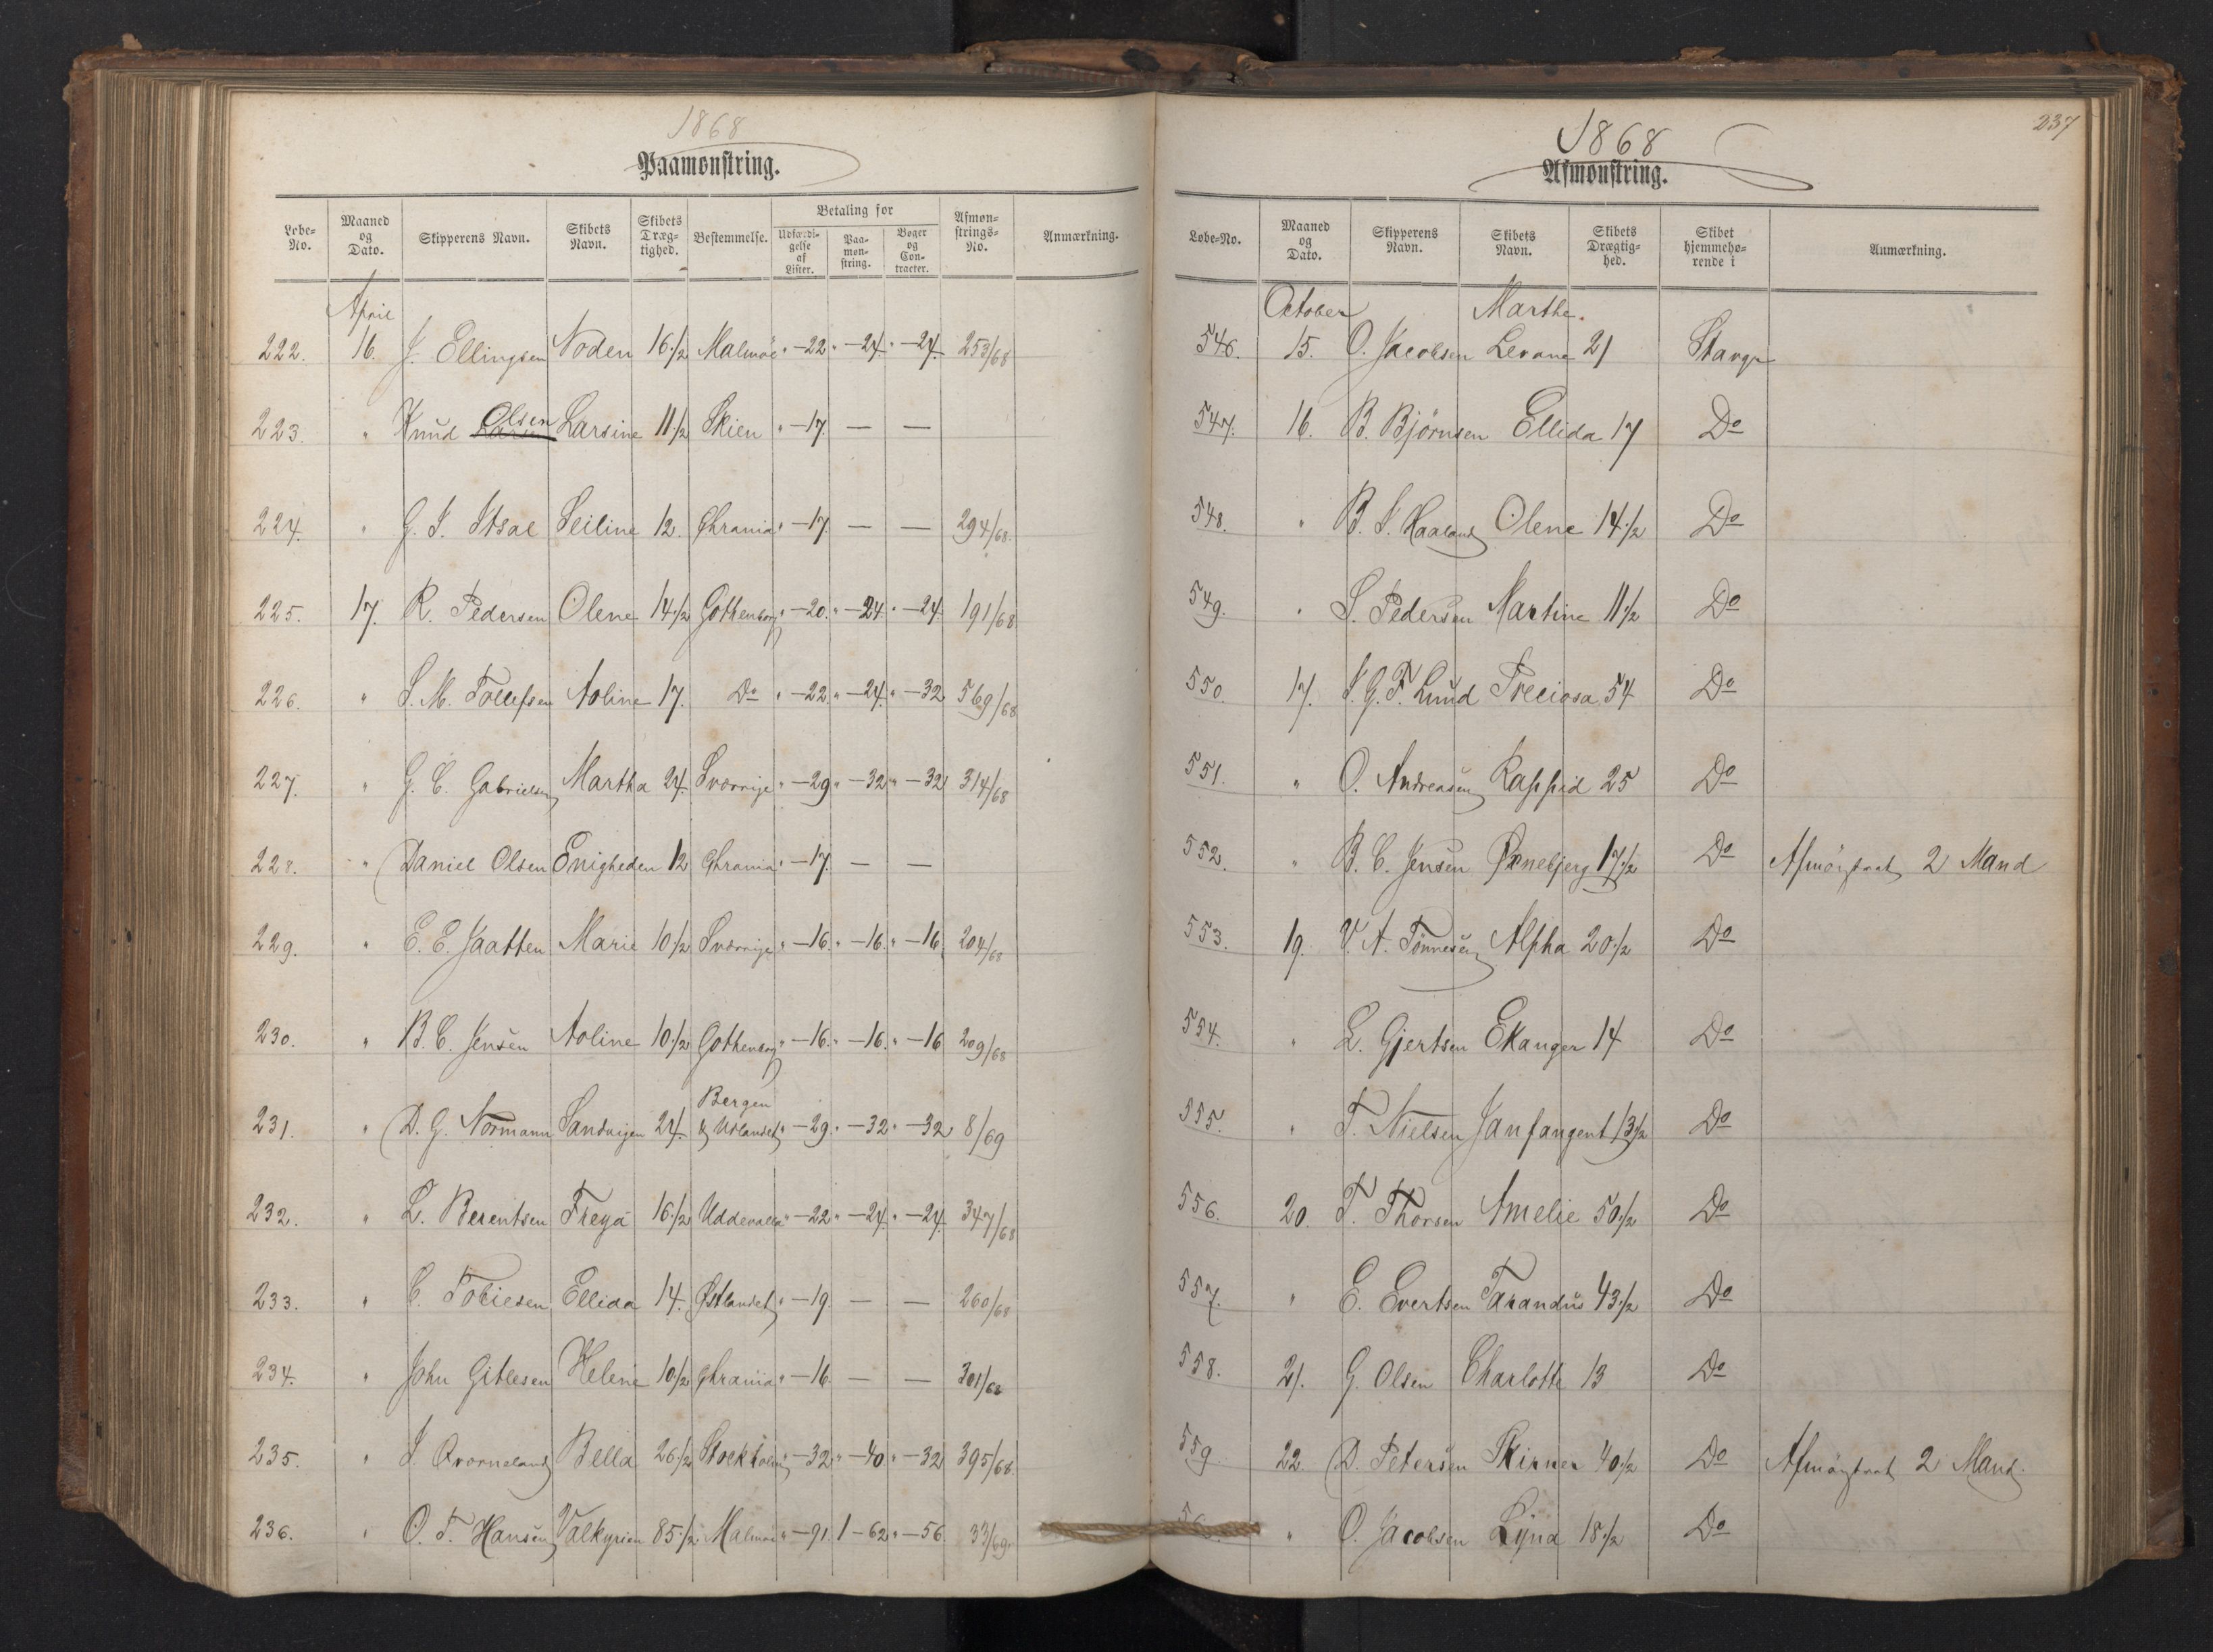 1868
Paamønstring.
Løbe-No. Maaned og Dato. Skipperens Navn. Skibets Navn. Skibets Dræg-tighed. Bestemmelse. Betaling for Udfærdi-gelse af Lister. Paa-møn-string. Bøger og Con-tracter. Afmøn-strings-No. Anmærkning.
April
222. 16. J. Ellingsen Noden 16 1/2 Malmöe " - 22 " - 24. " - 24. 253/68
223. " Knud Larsen Olsen Larsine 11 1/2 Skien " - 17. — —
224. " G. J. Seiline 12. Chrania " - 17. — — 294/68.
225. 17. R. Pedersen Olene 14 1/2 Gothenborg " - 20. " - 24. " - 24. 191/68
226. " S. M. Tollefsen Aoline 17. Do " - 22. " - 24. " - 32 569/68
227. " G. C. Gabrielsen Martha 24. Sverrige " - 29 " - 32 " - 32 314/68
228. " Daniel Olsen Enigheden 12 Chrania " - 17. — —
229. " E. E. Jaatten Marie 10 1/2 Sverrige " - 16. " - 16. " - 16. 204/68
230. " B. C. Jensen Aoline 10 1/2 Gothenborg " - 16. " - 16. " - 16 209/68
231. " D. G. Normann Sandvigen 24. Bergen & Udlandet " - 29. " - 32 " - 32 8/69
232. " L. Berentsen Freya 16 1/2 Uddevalla " - 22 " - 24. " - 24. 347/68
233. " C. Tobiesen Ellida 14. Østlandet " - 19. — — 260/68
234. " John Gitlesen Helene 10 1/2 Chrania " - 16. — — 301/68
235. " J. Qvorneland Bella 26 1/2 Stockholm " - 32 " - 40 " - 32 395/68.
236. " O. T. Hansen Valkyrien 85 1/2 Malmöe " - 91. 1 - 62 " - 56. 33/69.
237
1868
Afmønstring.
Løbe-No. Maaned og Dato. Skipperens Navn. Skibets Navn. Skibets Drægtig-hed. Skibet hjemmehø-rende i Anmærkning.
October Marthe.
546. 15. O. Jacobsen Levane 21 Stavgr
547. 16. B. Bjørnsen Ellida 17 Do
548. " B. S. Haaland Olene 14 1/2 Do
549. " S. Pedersen Martine 11 1/2 Do
550. 17. J. G. F. Lund Preciosa 54 Do
551. " O. Andreasen Rappid 25 Do
552. " B. C. Jensen Ørnebjerg 17 1/2 Do Afmönstrat 2 Mand
553. 19. V. A. Tønnesen Alpha 20 1/2 Do
554. " L. Gjertsen Ekanger 14 Do
555. " T. Nielsen Janfangent 13 1/2 Do
556. 20. T. Thorsen Amelie 50 1/2 Do
557. " E. Evertsen Tarandus 43 1/2 Do
558. 21. G. Olsen Charlotte 13 Do
559. 22. D. Petersen Skirner 40 1/2 Do Afmönstrat 2 Mand.
" O. Jacobsen Lyna 18 1/2 Do